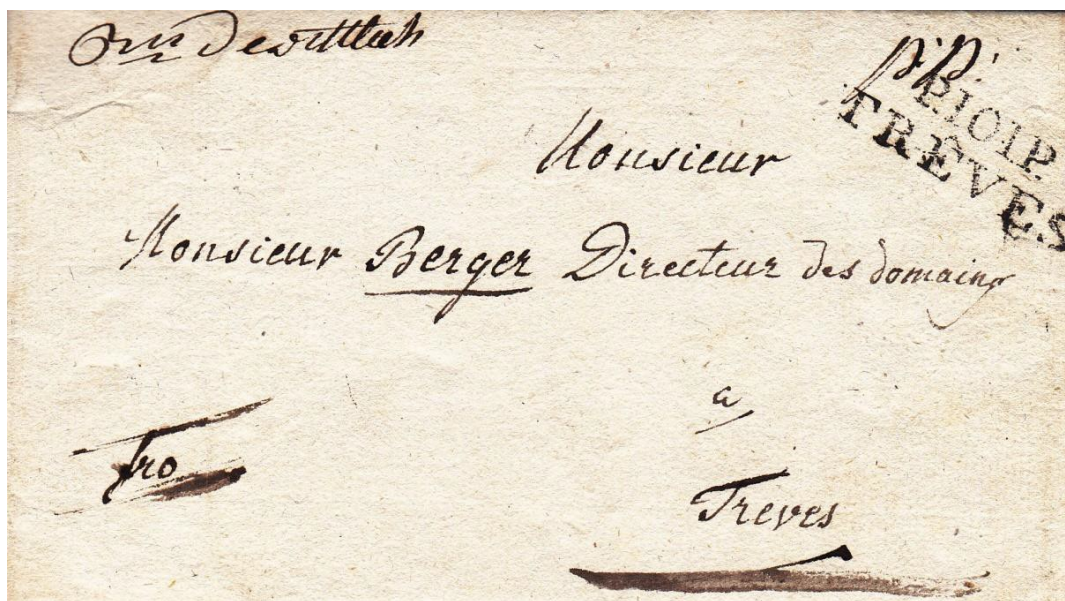 de wittlich
p. p.
P.101P.
TRÊVES
Monsieur
Monsieur Berger Directeur des domaines
a
fro
Treves